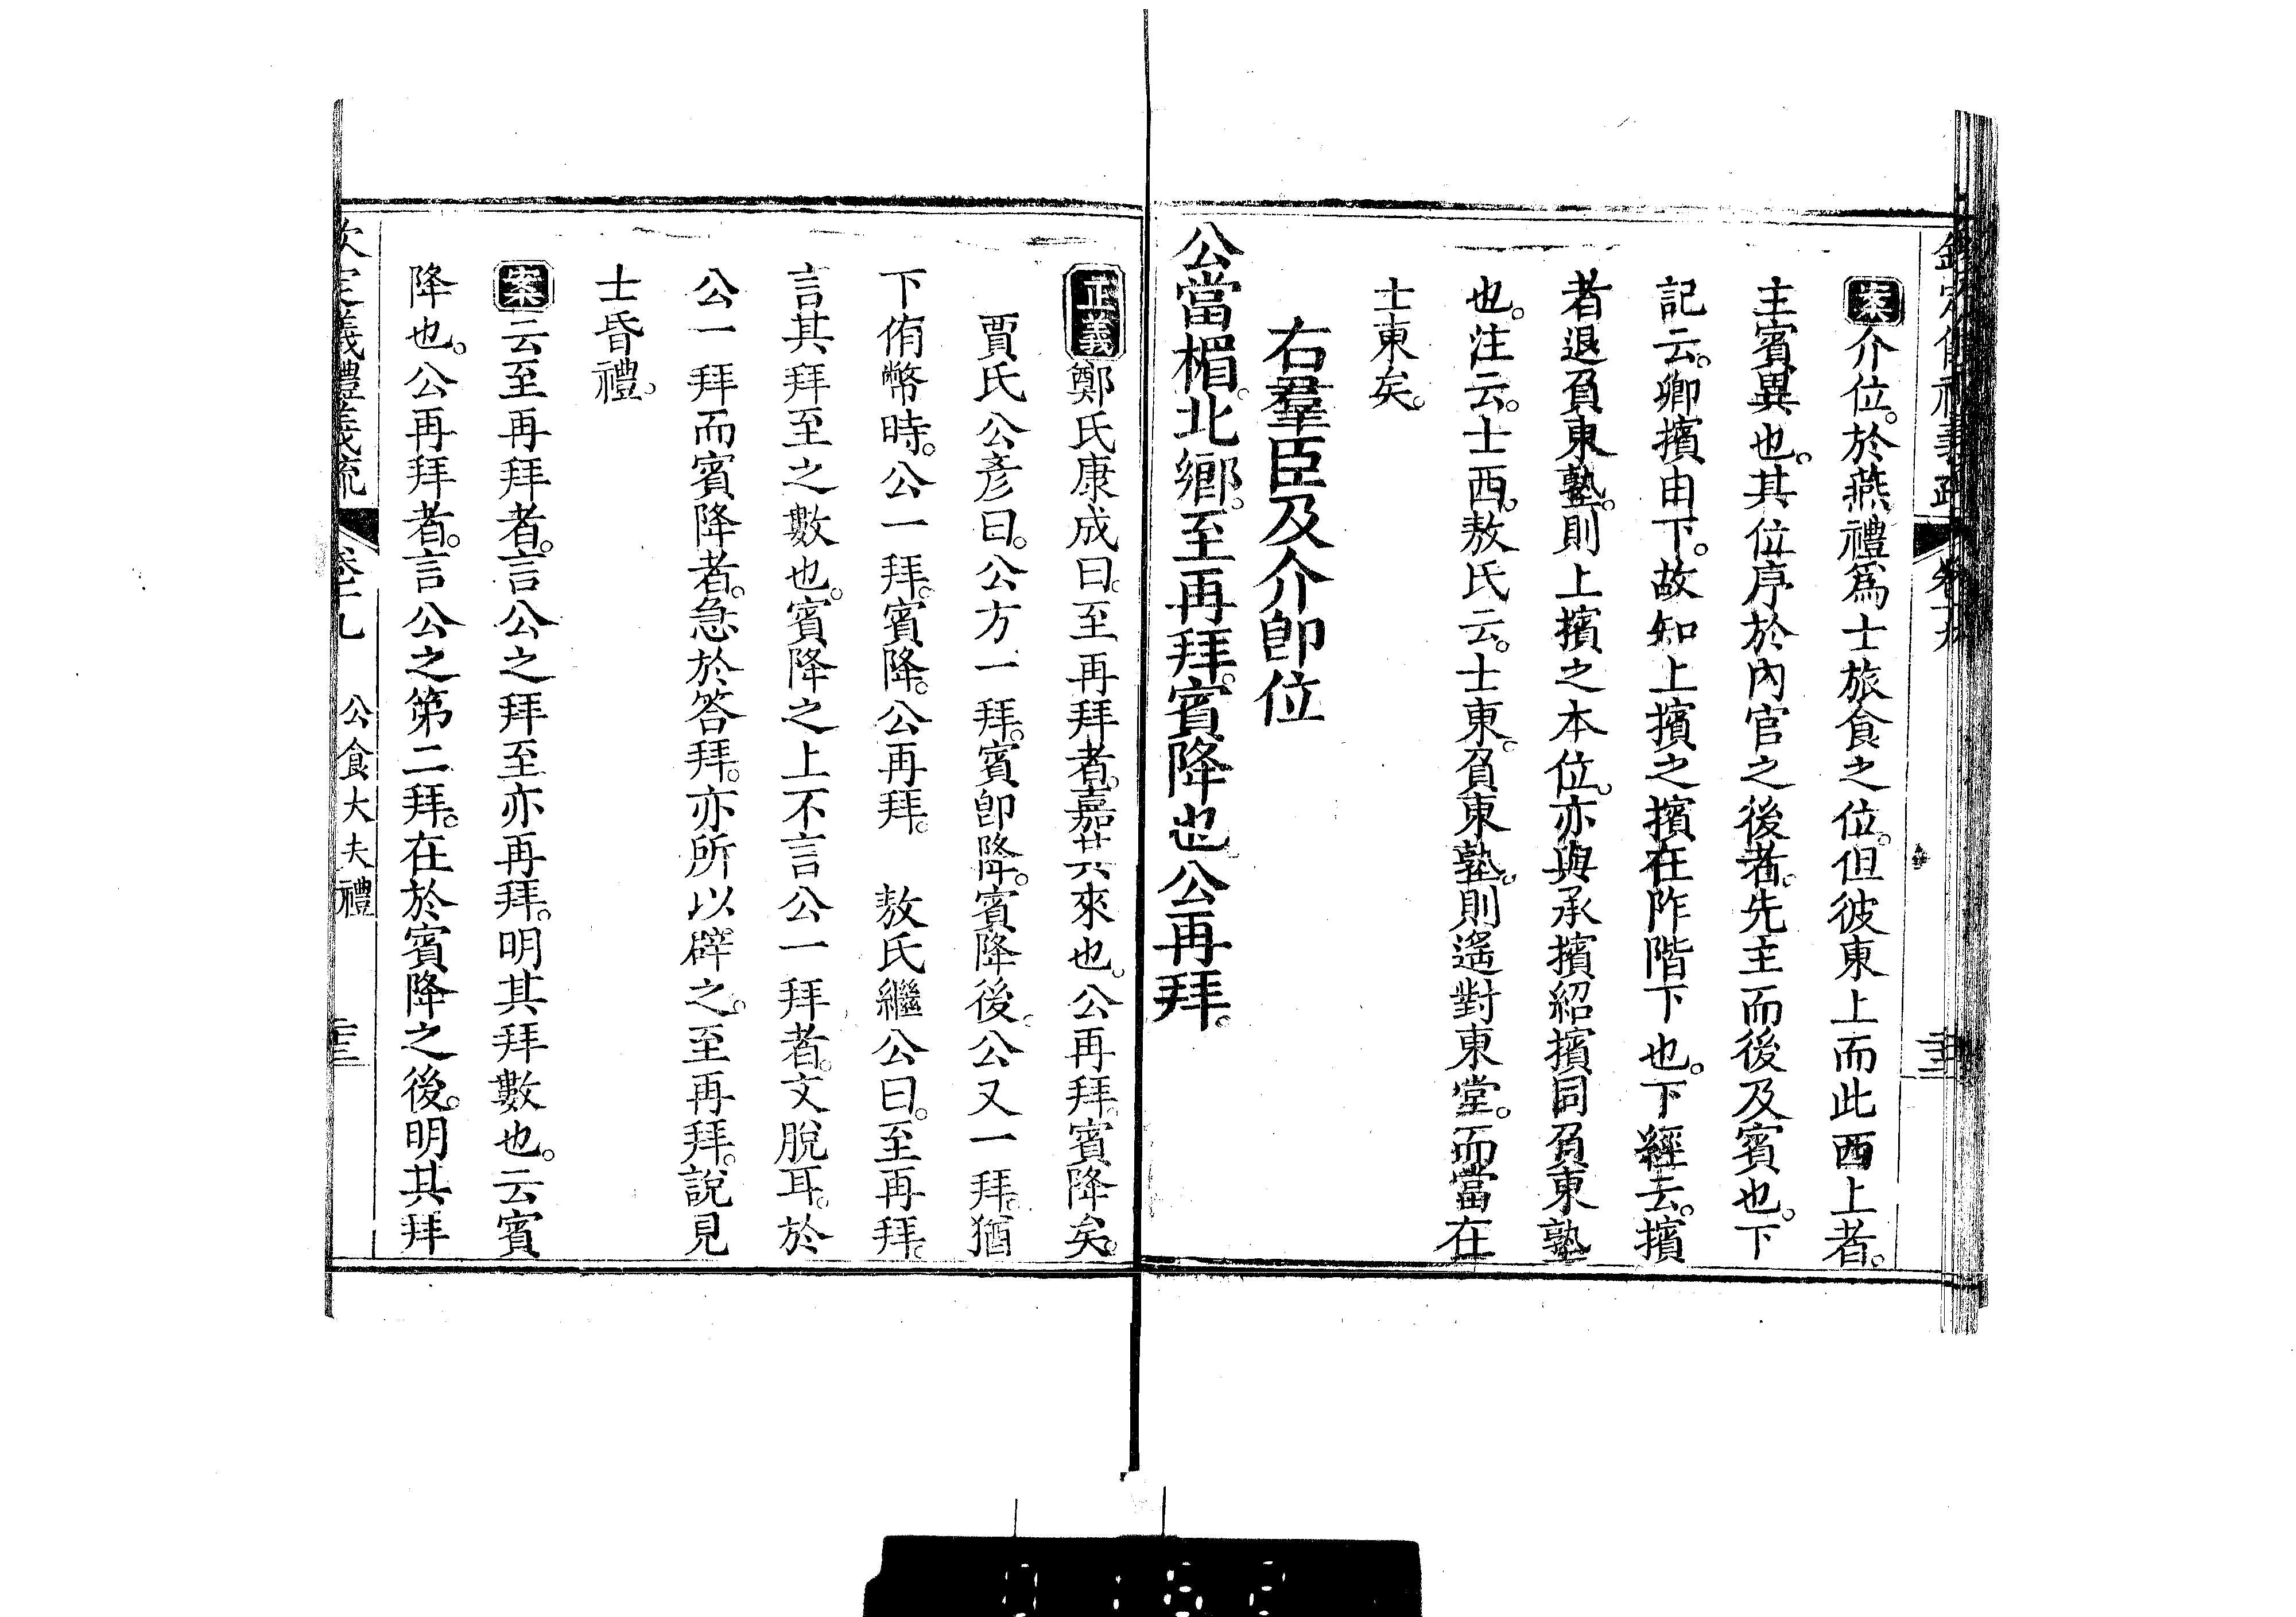 案介位。於燕禮爲士旅食之位。但彼東上而此西上者。
主賓異也。其位序於內官之後者。先主而後及賓也。下
記云。卿擯由下。故知上擯之擯在阼階下也。下經云。擯
者退負東塾。則上擯之本位。亦與承擯紹擯同負東塾
也。注云。士西。敖氏云。士東。負東塾。則遙對東堂。而當在
士東矣。
右羣臣及介卽位
公當楣。北鄉。至再拜。賓降也公再拜。
正義鄭氏康成曰。至再拜者。嘉其來也。公再拜。賓降矣。
賈氏公彥曰。公方一拜。賓卽降。賓降後。公又一拜。猶
下侑幣時。公一拜。賓降。公再拜。 敖氏繼公曰。至再拜。
言其拜至之數也。賓降之上不言公一拜者。文脫耳。於
公一拜而賓降者。急於答拜。亦所以辟之。至再拜。說見
士昏禮。
案云至再拜者。言公之拜至亦再拜。明其拜數也。云賓
降也。公再拜者。言公之第二拜。在於賓降之後。明其拜
欽定義禮義疏 卷十九 公食大夫禮